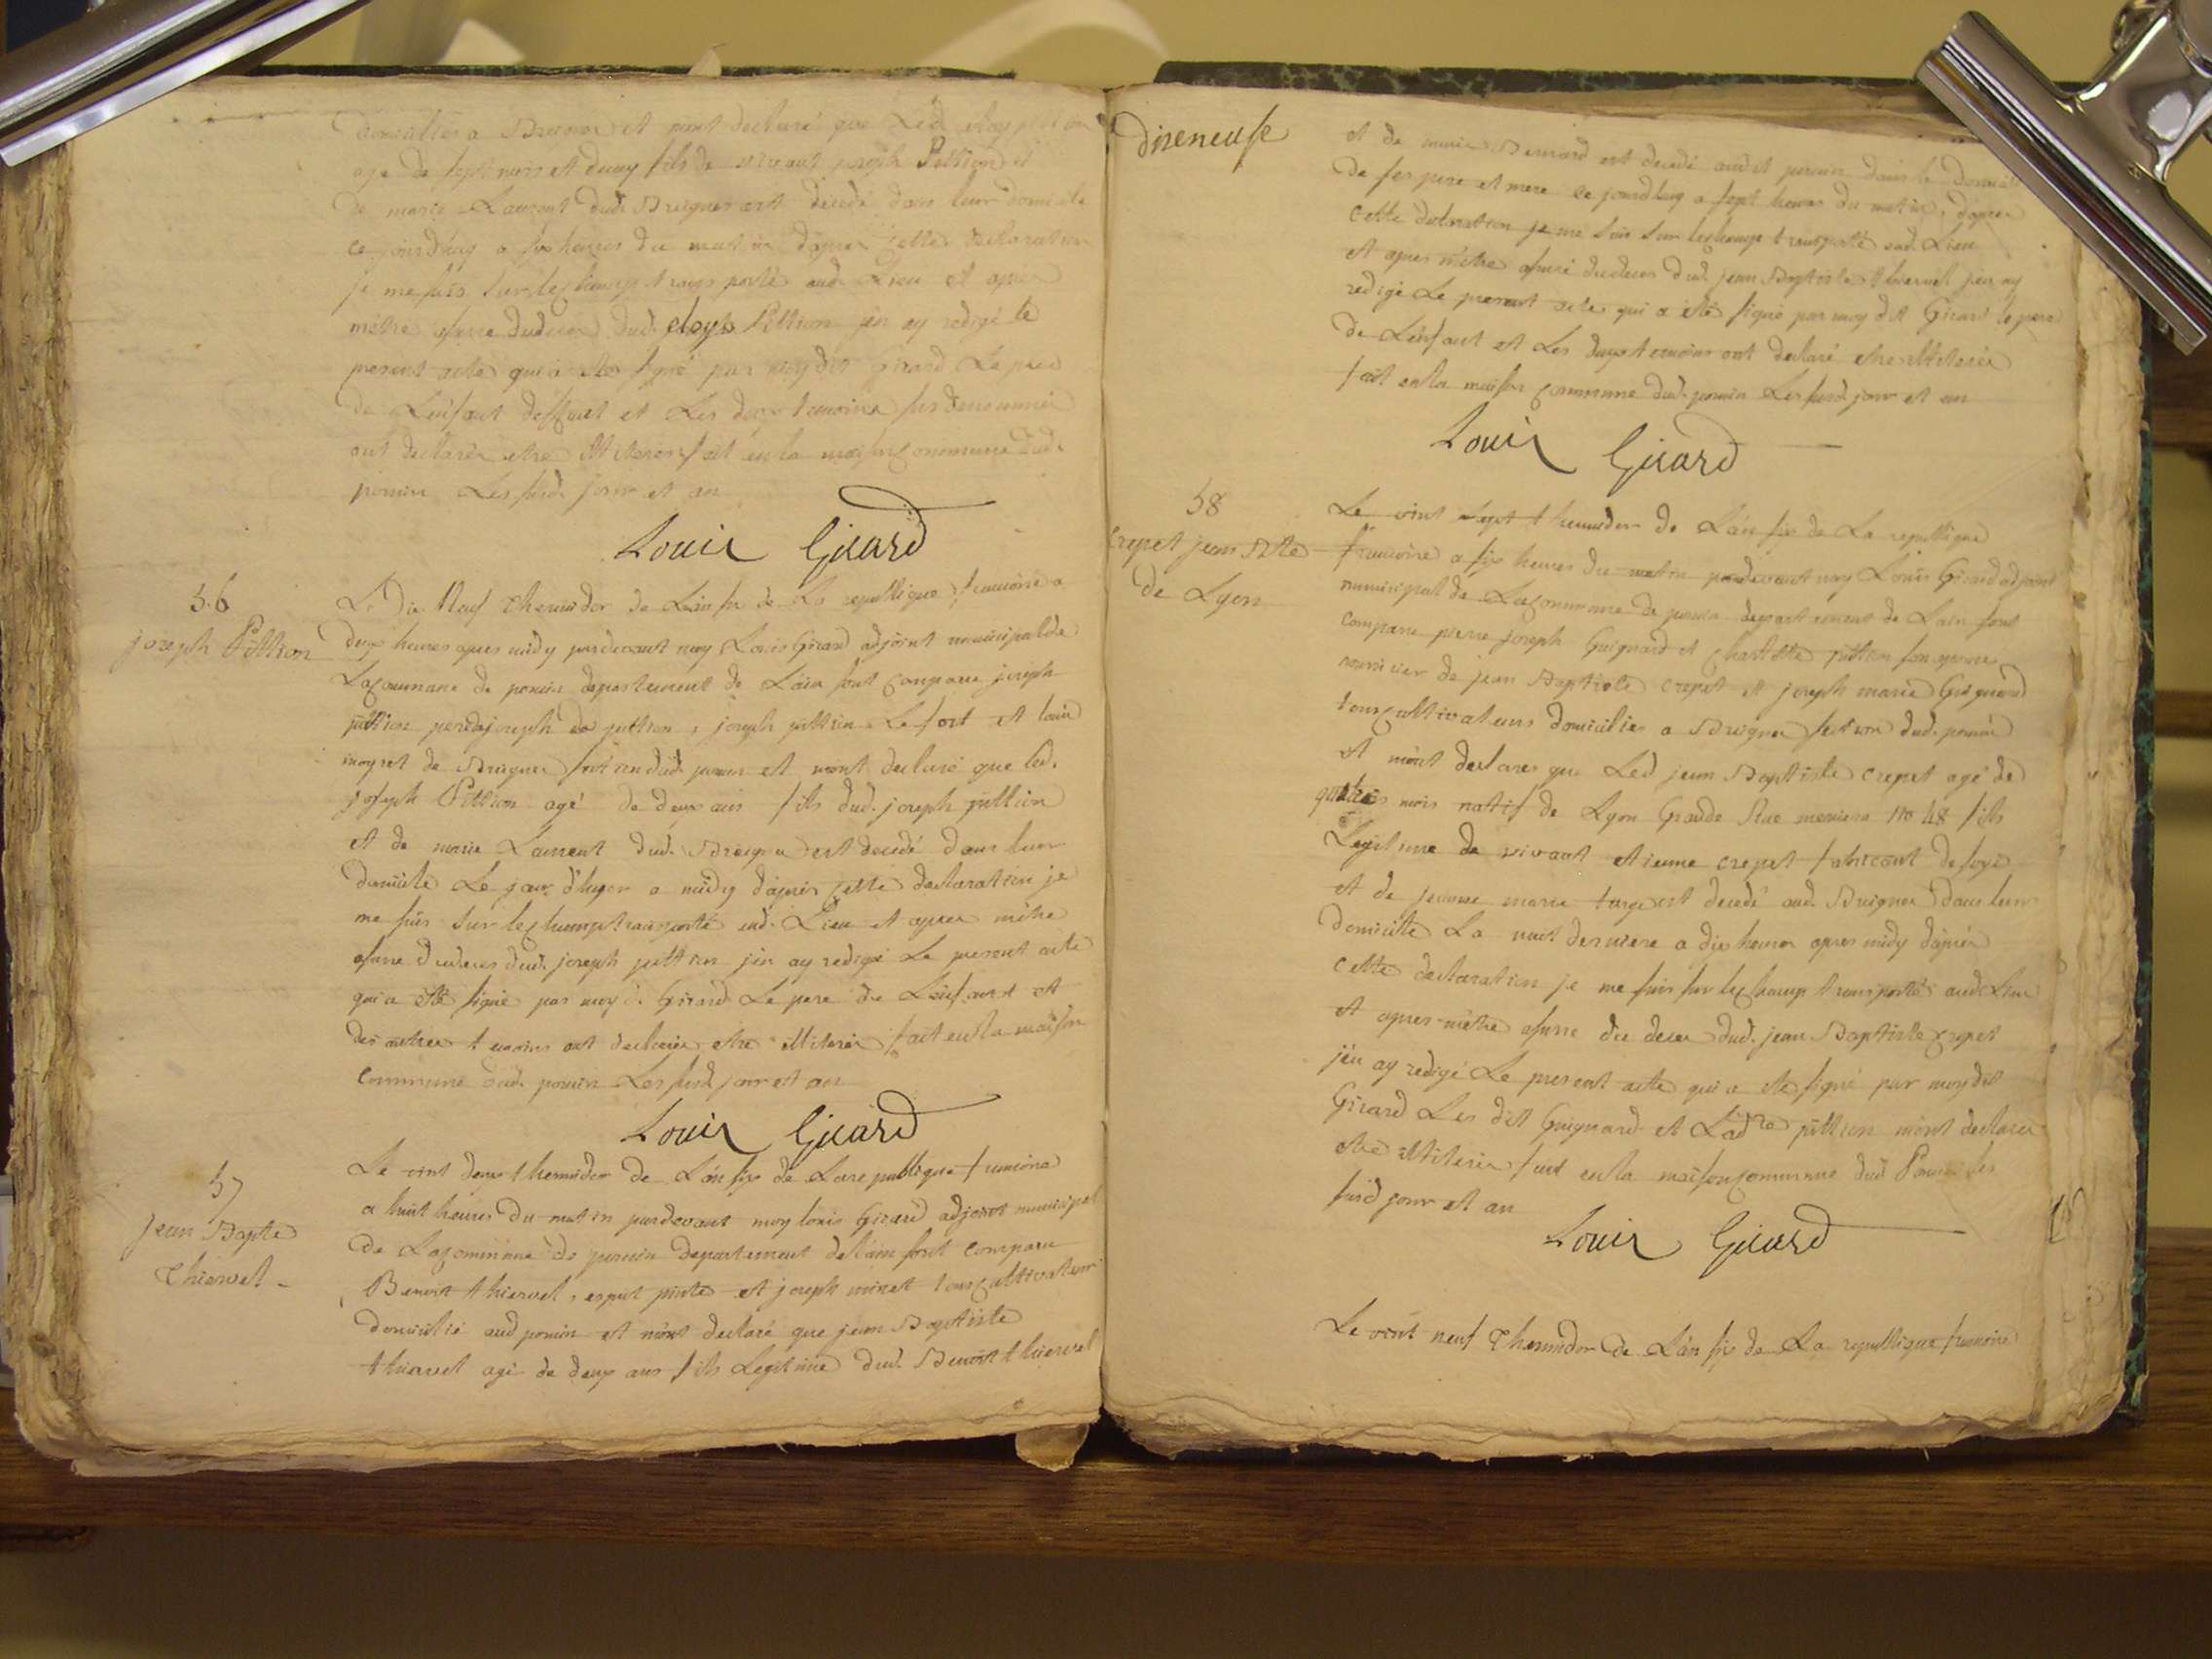 domiciliés a Breignes et mont declaré que Led eloy pittion
age de sept mois et demy fils de vivant joseph Pittion et
de marie Laurent dud. Breignes est decedé dans leur domicile
ce jourdhuy a six heures du matin d'apres cette declaration
je me suis sur le champ transporté aud. Lieu et apres
métre assure dudeces dud. eloys Pittion jen ay redigé le
present acte qui a eté signé par moy dit girard Le pere
de Lenfant deffunt et Les deux temoins sus denommés
ont declarés etre illiteres fait en la maison commune dud.
poncin Les susd. jour et an
Louis Girard
56
joseph Pittion
Le dix Neuf thermidor de Lan six de La republique francoise a
deux heures apres midy pardevant moy Louis Girard adjoint municipal de
La commune de poncin departement de Lain sont comparu joseph
pittion pere de joseph pittion, joseph pittion Le fort et louis
moyret de Breignes section dud. poncin et mont declaré que led.
joseph Pittion agé de deux ans fils dud. joseph pittion
et de marie Laurent dud. Breignes est decedé dans leur
domicile Le jour d'hyer a midy d'apres cette declaration je
me suis sur le champ transporté aud. Lieu et apres métre
assure dudeces dud. joseph pittion j'en ay redigé Le present acte
qui a eté signé par moy d. Girard Le pere de Lenfant et
des autres temoins ont declarés etre illiterés fait en la maison
commune dud. poncin Les susd jour et an
Louis Girard
57
jean Bapte
Thiervel
Le vint deux thermidor de Lan six de La republique francoise
a huit heures du matin pardevant moy louis Girard adjoint municipal
de La commune de poncin departement de lain sont comparu
Benoit thiervel, esprit pivte et joseph minet tous cultivateurs
domicilié aud poncin et mont declaré que jean Baptiste
thiervel agé de deux ans fils Legitime dud. Benoit thiervel
direneuse
et de marie Bernard est decedé audit poncin dans le domicile
de ses pere et mere ce jourdhuy a sept heures du matin, dapres
cette declaration je me suis sur lechamp transporté aud. Lieu
et apres métre assuré du deces dud. jean Baptiste thiervel jen ay
redigé Le present acte qui a eté signé par moy dit Girard le pere
de Lenfant et Les deux temoins ont declaré etre illiterés
fait en la maison commune dud. poncin Les susd. jour et an
Louis Girard
58
crepet jean Bte
de Lyon
Le vint sept thermidor de Lan six de La republique
francoise a six heures du matin pardevant moy Louis Girard adjoint
municipal de La commune de poncin departement de Lain sont
comparu pierre joseph Guignard et pittion son epouse
nourricier de jean Baptiste crepet et joseph marie Guignard
tous cultivateurs domiciliés a Breignes section dud. poncin
et m'ont declarés que Led jean Baptiste crepet agé de
quatres mois nattif de Lyon Grande Rue meniere no 48 fils
Legitime de vivant etienne crepet fabricant de soye
et de jeanne marie turge est decedé aud. Breignes dans leur
domicile La nuit derniere a dix heures apres midy d'apres
cette declaration je me suis sur lechamp transporté aud Lieu
et apres métre assure du deces dud. jean Baptiste crepet
j'en ay redigé Le present acte qui a eté signé par moy dit
Girard Les dit Guignard et Ladte pittion mont declarés
etre illiterés fait en la maison commune dud Poncin Les
susd jour et an
Louis Girard
Le vint neuf Thermidor de Lan six de La republique francoise